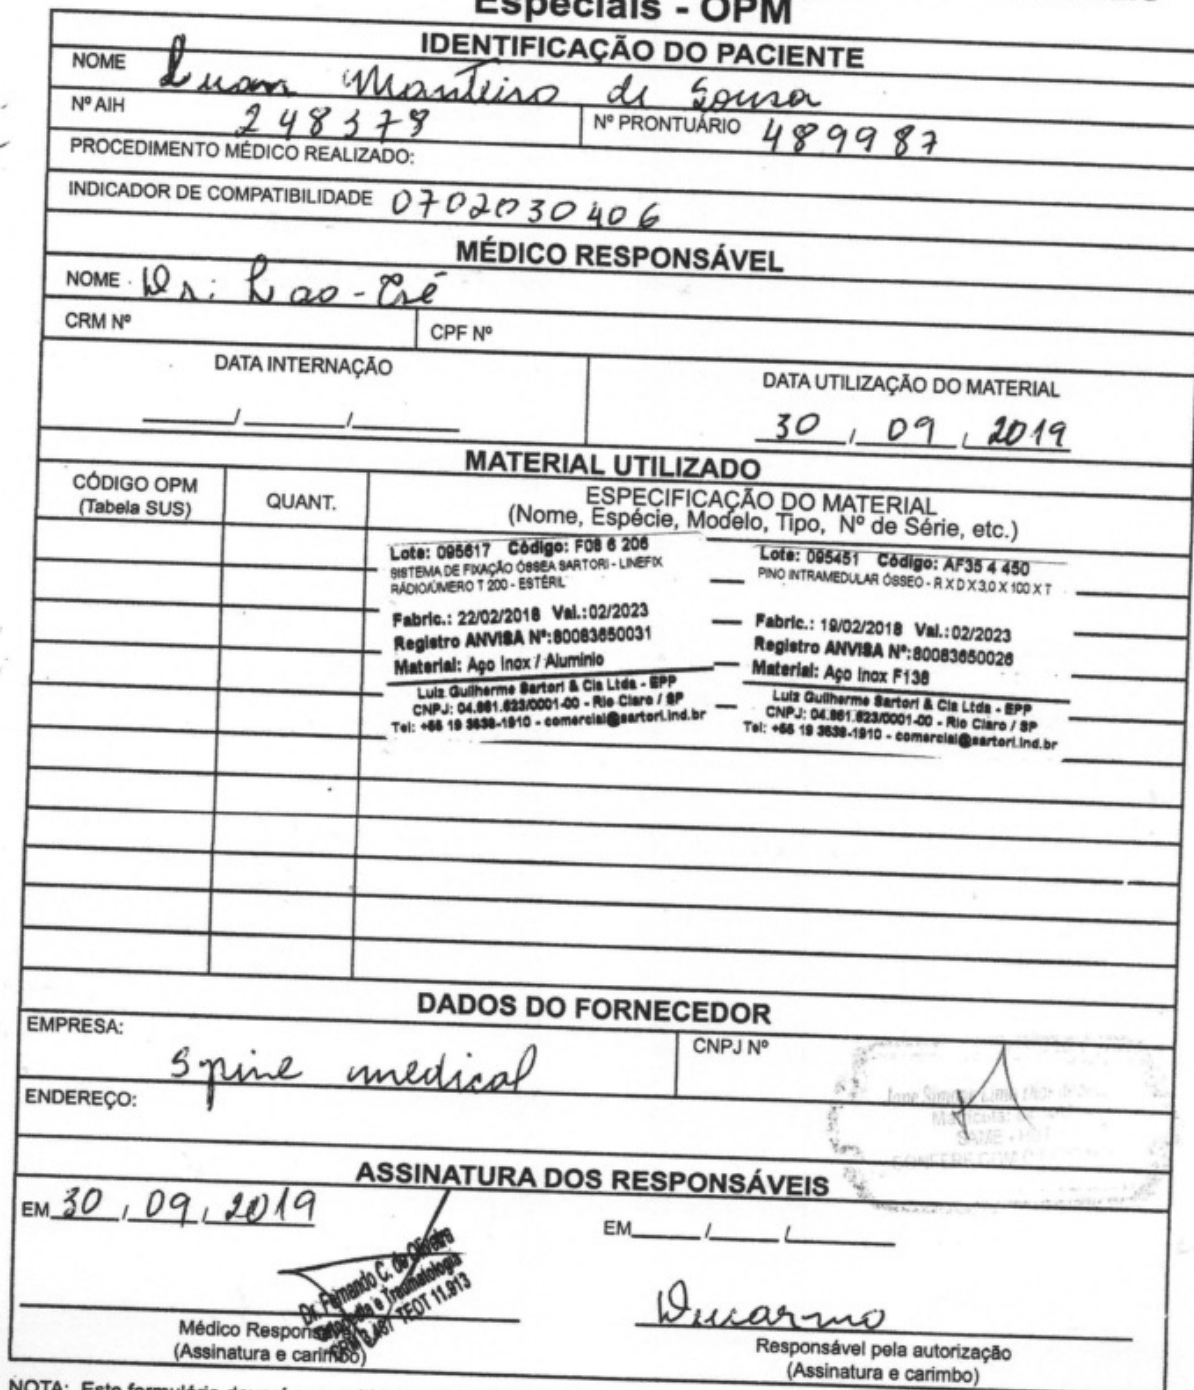 Especiais - OPM
IDENTIFICAÇÃO DO PACIENTE
NOME Luan Monteiro de Sousa
Nº AIH 248378 Nº PRONTUÁRIO 489987
PROCEDIMENTO MÉDICO REALIZADO:
INDICADOR DE COMPATIBILIDADE 0702030406
MÉDICO RESPONSÁVEL
NOME Dr: Lao-Tsé
CRM Nº CPF Nº
DATA INTERNAÇÃO DATA UTILIZAÇÃO DO MATERIAL
___/___/___ 30 / 09 / 2019
MATERIAL UTILIZADO
CÓDIGO OPM (Tabela SUS) QUANT. ESPECIFICAÇÃO DO MATERIAL
(Nome, Espécie, Modelo, Tipo, Nº de Série, etc.)
Lote: 095617 Código: F08 6 206
SISTEMA DE FIXAÇÃO ÓSSEA SARTORI - LINEFIX
RÁDIO/ÚMERO T 200 - ESTÉRIL
Fabric.: 22/02/2018 Val.:02/2023
Registro ANVISA Nº:80083650031
Material: Aço Inox / Alumínio
Luiz Guilherme Sartori & Cia Ltda - EPP
CNPJ: 04.861.623/0001-00 - Rio Claro / SP
Tel: +55 19 3538-1910 - comercial@sartori.ind.br
Lote: 095451 Código: AF35 4 450
PINO INTRAMEDULAR ÓSSEO - R X D X 3,0 X 100 X T
Fabric.: 19/02/2018 Val.:02/2023
Registro ANVISA Nº:80083650026
Material: Aço Inox F138
Luiz Guilherme Sartori & Cia Ltda - EPP
CNPJ: 04.861.623/0001-00 - Rio Claro / SP
Tel: +55 19 3538-1910 - comercial@sartori.ind.br
DADOS DO FORNECEDOR
EMPRESA: Spine medical CNPJ Nº
ENDEREÇO:
SAME - HDT
ASSINATURA DOS RESPONSÁVEIS
EM 30 / 09 / 2019 EM___/___/___
Dr. Fernando C. de Oliveira
Ortopedia e Traumatologia
TEOT 11.913
Médico Responsável
(Assinatura e carimbo)
Responsável pela autorização
(Assinatura e carimbo)
NOTA: Este formulário deverá